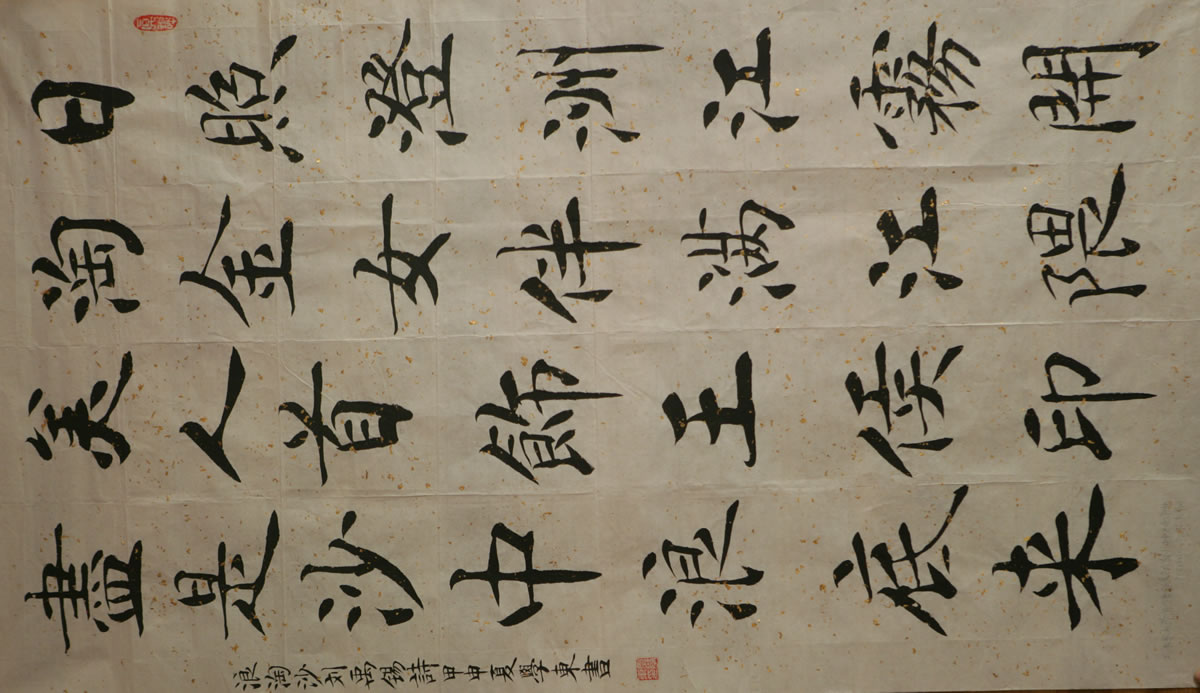 日照澄洲江霧開
淘金女伴滿江隈
美人首飾王侯印
盡是沙中浪底來
浪淘沙刘禹錫詩甲申夏學東書